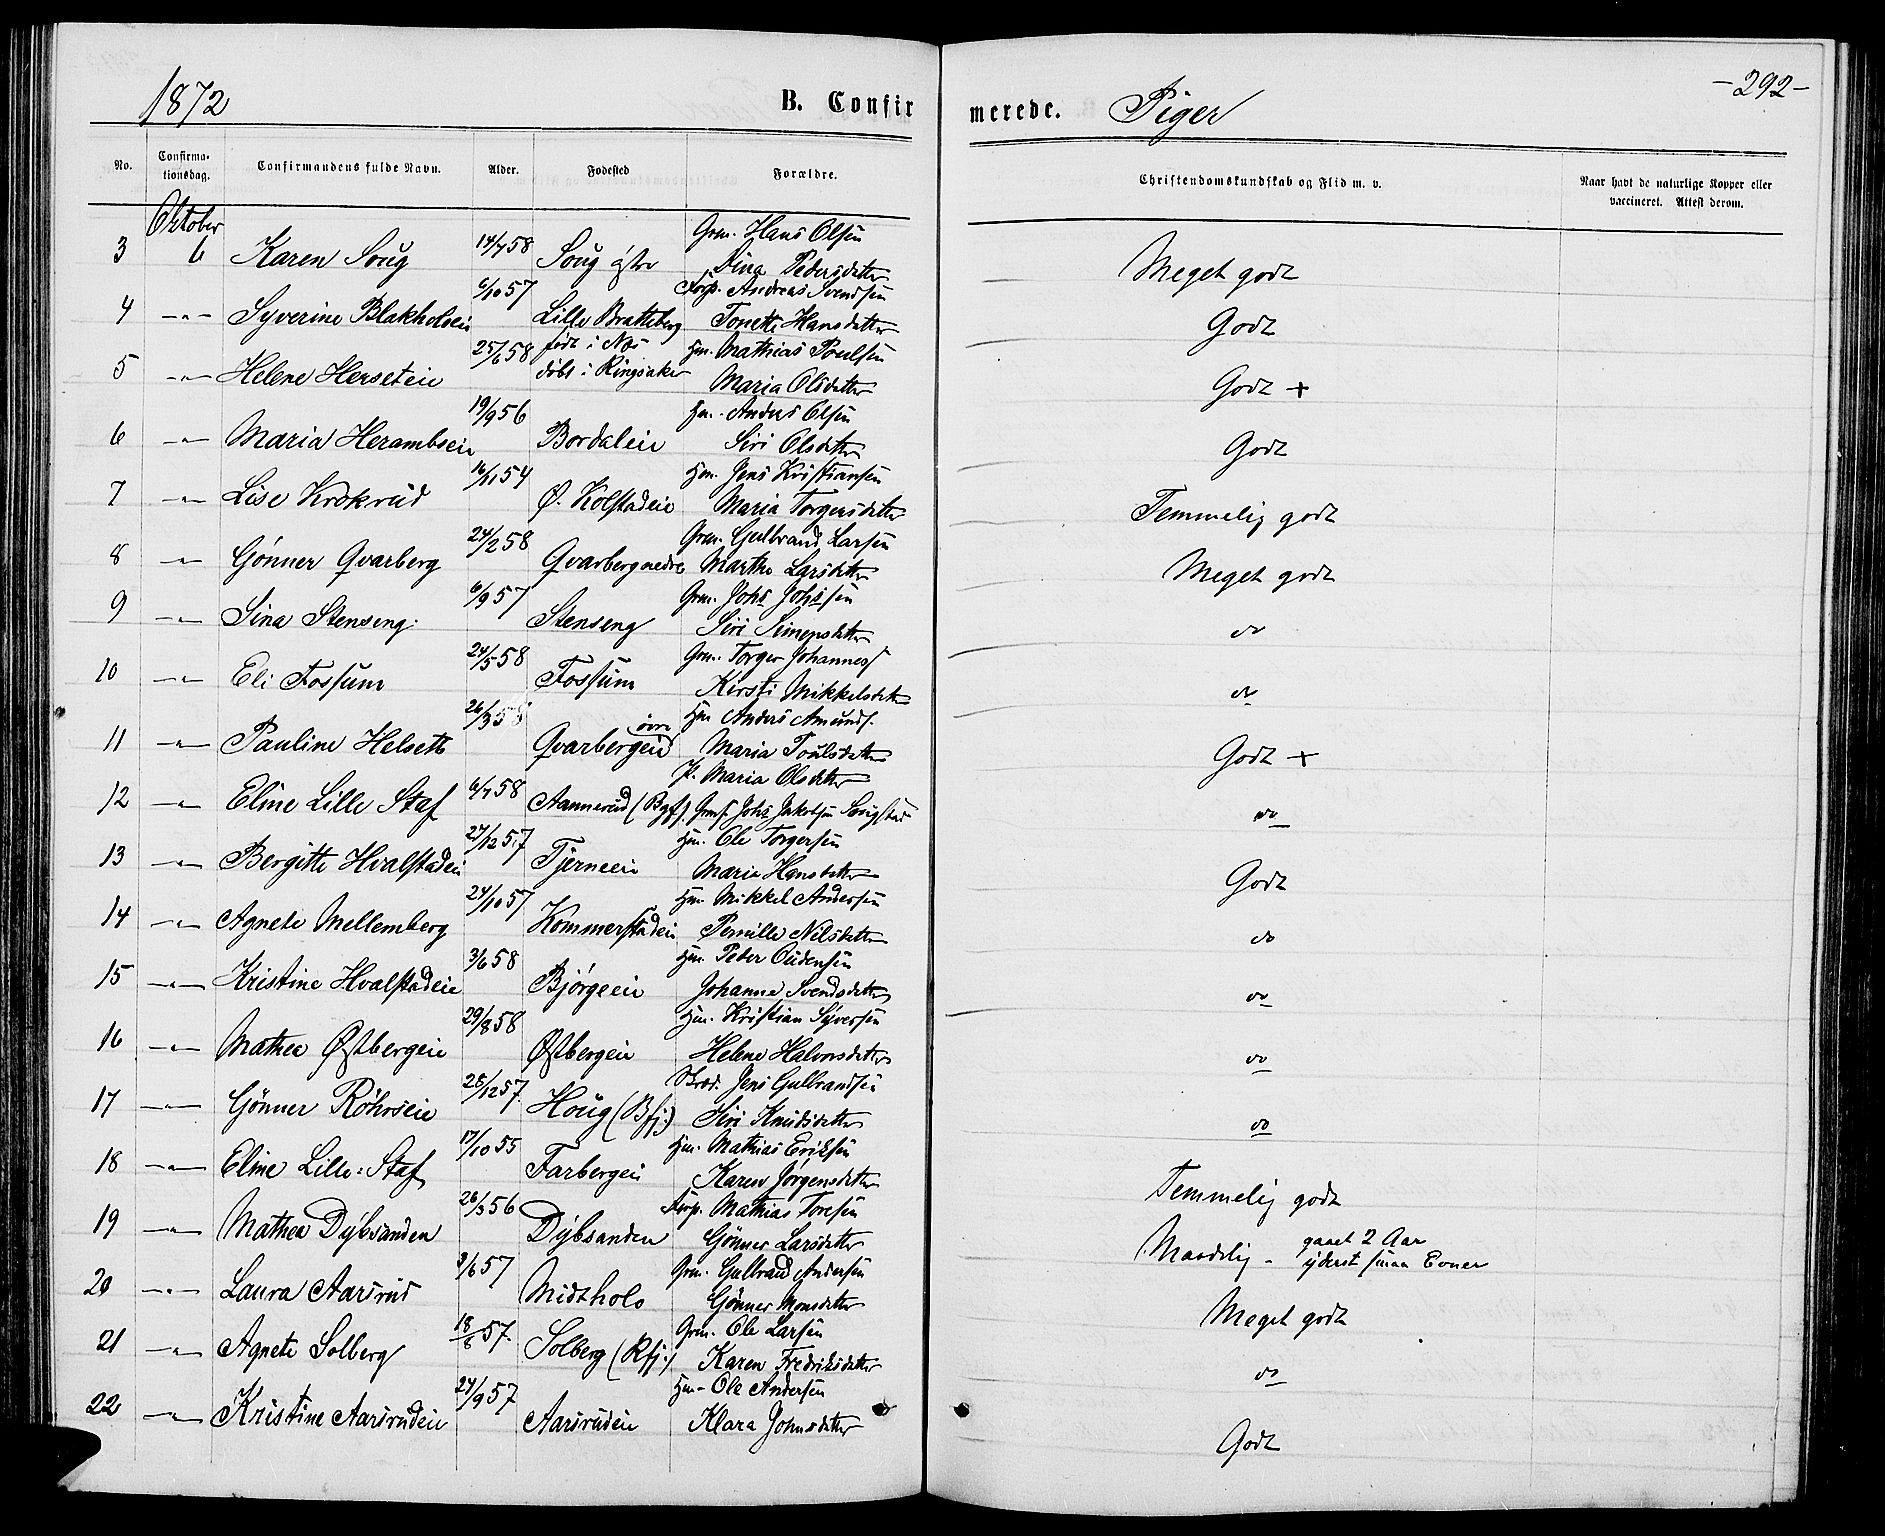 1872 B. Confirmerede. Piger -292-
No. Confirmationsdag. Confirmandens fulde Navn. Alder. Fødested Forældre. Christendomskundskab og Flid m. v. Naar havt de naturlige Kopper eller vaccineret. Attest derom.
Oktober
Grm. Hans Olsen
3 6 Karen Soug 14/7 58 Soug østre Dina Pedersdatter Meget godt
Forp. Andreas Svendsen
4 -"- Syverine Blakholseie 6/10 57 Lille Bratteberg Tonette Hansdatter Godt
født i Næs Hm. Mathias Poulsen
5 -"- Helene Herseteie 25/6 58 døbt i Ringsaker Maria Olsdatter Godt +
Hm. Anders Olsen
6 -"- Maria Herambseie 19/9 56 Bordaleie Siri Olsdatter Godt
Hm. Jens Kristiansen
7 -"- Lise Krokrud 16/11 54 Ø. Kolstadeie Maria Torgersdatter Temmelig godt
Grm. Gulbrand Larsen
8 -"- Gønner Qvarberg 24/2 58 Qvarberg nedre Marthe Larsdatter Meget godt
Grm. Johs Johssen
9 -"- Sina Stenseng 6/9 57 Stenseng Siri Simensdatter do
Grm. Torger Johanness
10 -"- Eli Fossum 24/5 58 Fossum Kirsti Mikkelsdatter do
Hm Anders Amunds.
11 -"- Pauline Helseth 26/3 58 Qvarbergeie øvre Maria Poulsdatter Godt +
P. Maria Olsdatter
12 -"- Eline Lille Staf 6/7 58 Aannerud (Bgf). Grms. Johs Jakobsen Sougstad do
Hm. Ole Torgersen
13 -"- Bergitte Hvalstadeie 27/12 57 Tjerneeie Maria Hansdatter Godt
Hm. Mikkel Andersen
14 -"- Agnete Mellemberg 24/10 57 Kommerstadeie Pernille Nilsdatter do
Hm. Peder Oudensen
15 -"- Kristine Hvalstadeie 3/6 58 Bjørgeeie Johanne Svendsdatter do
Hm. Kristian Syversen
16 -"- Mathea Østbergeie 29/8 58 Østbergeie Helene Halvorsdatter do
Jens Gulbrandsen
17 -"- Gønner Röhrseie 28/12 57 Houg (Bfj:) Siri Knudsdatter do
Hm. Mathias Eriksen
18 -"- Eline Lille-Staf 17/10 55 Farbergeie Karen Jørgensdatter Temmelig godt
Forp. Mathias Toresen
19 -"- Mathea Dybsanden 26/3 56 Dybsanden Gønner Larsdatter Maadelig - gaaet 2 Aar
yderst smaa Evner
Grm. Gulbrand Andersen
20 -"- Laura Aarsrud 3/6 57 Midtholo Gønner Monsdatter Meget godt
Grm. Ole Larsen
21 -"- Agnete Solberg 18/6 57 Solberg (Rfj:) Karen Fredriksdatter do
Hm- Ole Andersen
22 -"- Kristine Aarsrudeie 24/9 57 Aarsrudeie Klara Johnsdatter Godt